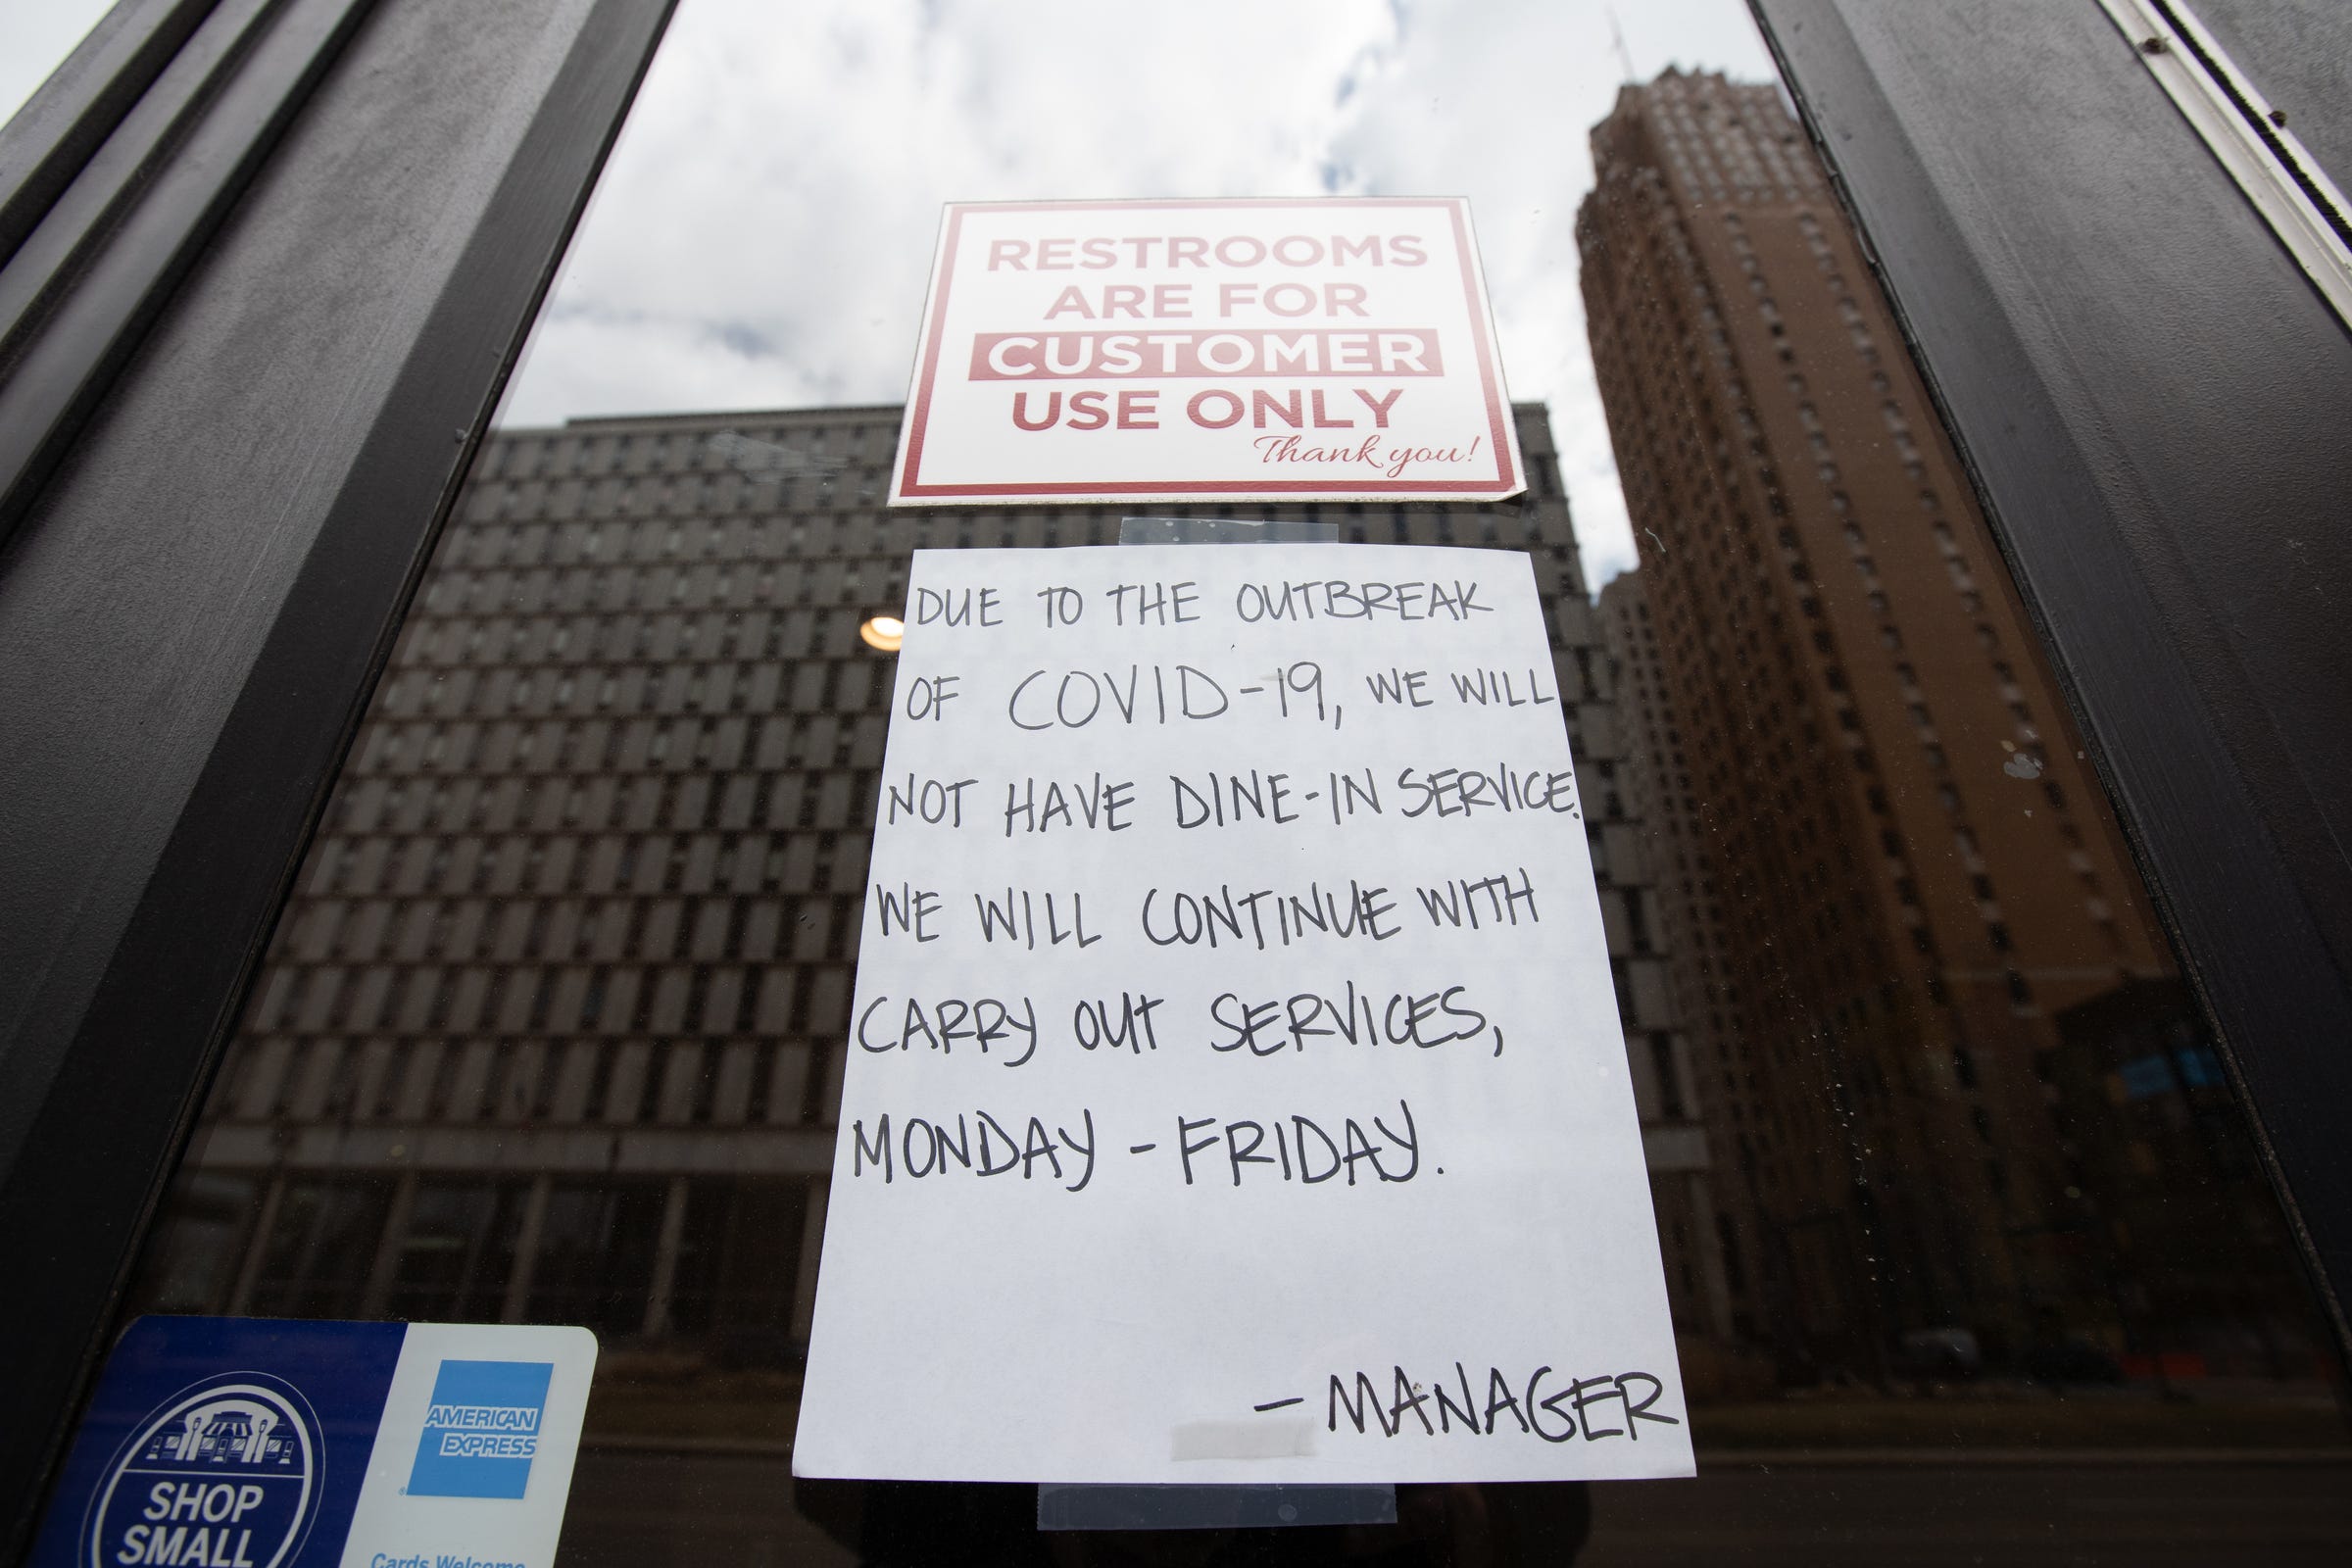 RESTROOMS
ARE FOR
CUSTOMER
USE ONLY
Thank you!
DUE TO THE OUTBREAK
OF COVID-19, WE WILL
NOT HAVE DINE-IN SERVICE.
WE WILL CONTINUE WITH
CARRY OUT SERVICES,
MONDAY - FRIDAY.
- MANAGER
SHOP
SMALL
AMERICAN
EXPRESS
Cards Welcome